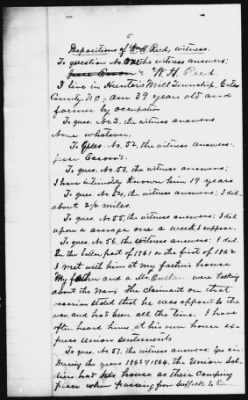 5
Depositions of W. H. Reed, witness.
To question No. One the witness answers:
Jesse Eason's W. H. Reed
I live in Hunters Mill Township, Gates
County, NC, am 39 years old and
farmer by occupation
To ques. No 2. the witness answers
None whatever.
To Ques. No. 52, the witness answers.
Jesse Eason's.
To ques. No. 53, the witness answers:
I have intimately known him 19 years
To ques. No. 54, the witness answers: I did.
about 2½ miles.
To ques. No 55, the witness answers: I did
upon a average once a week, I suppose.
To ques. No. 56, the witness answers: I did.
In the latter part of 1861 or the first of 1862
I met with him at my fathers house.
My father and a Mr. Cullen were talking
about the war. The claimant on that
occasion stated that he was opposed to the
war and had been all the time. I have
often heard him at his own house ex-
press Union sentiments
To ques. No. 57, the witness answers: Yes sir.
During the years 1863 & 1864, the Union Sol-
diers had his house as their camping
place when passing from Suffolk to